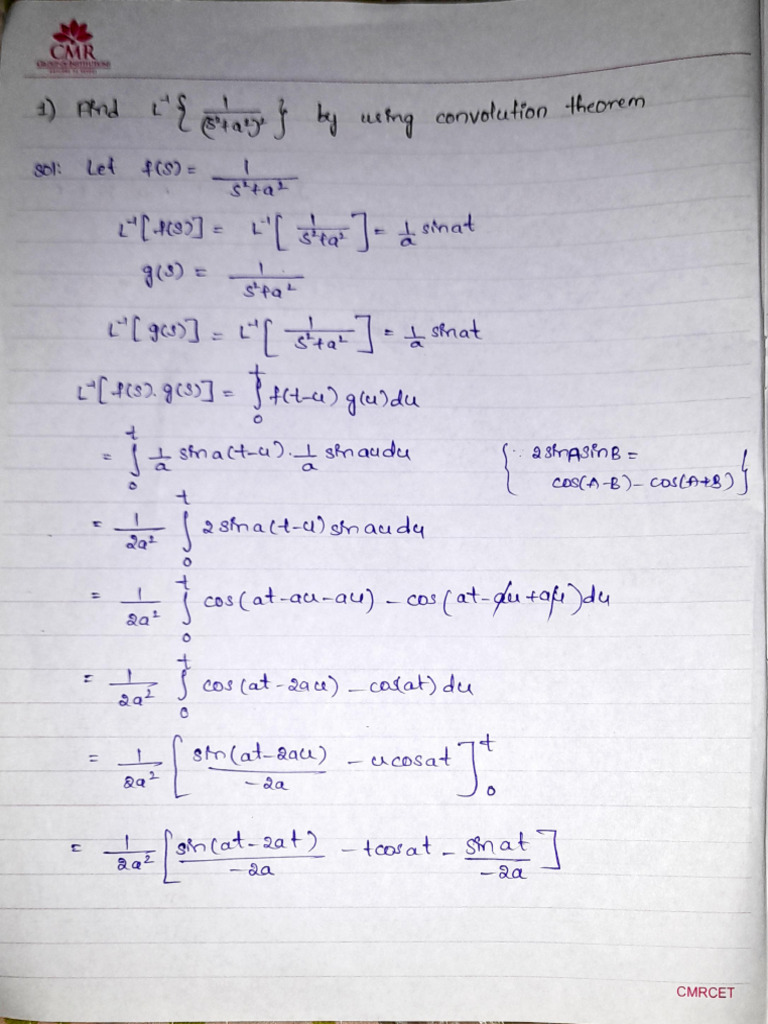 CMR
GROUP OF INSTITUTIONS
1) Find L⁻¹{ 1/(s²+a²)² } by using convolution theorem
sol: Let f(s) = 1/(s²+a²)
L⁻¹[f(s)] = L⁻¹[ 1/(s²+a²) ] = 1/a sinat
g(s) = 1/(s²+a²)
L⁻¹[g(s)] = L⁻¹[ 1/(s²+a²) ] = 1/a sinat
L⁻¹[f(s).g(s)] = ∫₀ᵗ f(t-u) g(u) du
= ∫₀ᵗ 1/a sina(t-u) . 1/a sinau du
{ ∵ 2sinAsinB =
cos(A-B) - cos(A+B) }
= 1/2a² ∫₀ᵗ 2sina(t-u) sinau du
= 1/2a² ∫₀ᵗ cos(at-au-au) - cos(at-au+au) du
= 1/2a² ∫₀ᵗ cos(at-2au) - cos(at) du
= 1/2a² [ sin(at-2au)/-2a - ucosat ]₀ᵗ
= 1/2a² [ sin(at-2at)/-2a - tcosat - sinat/-2a ]
CMRCET